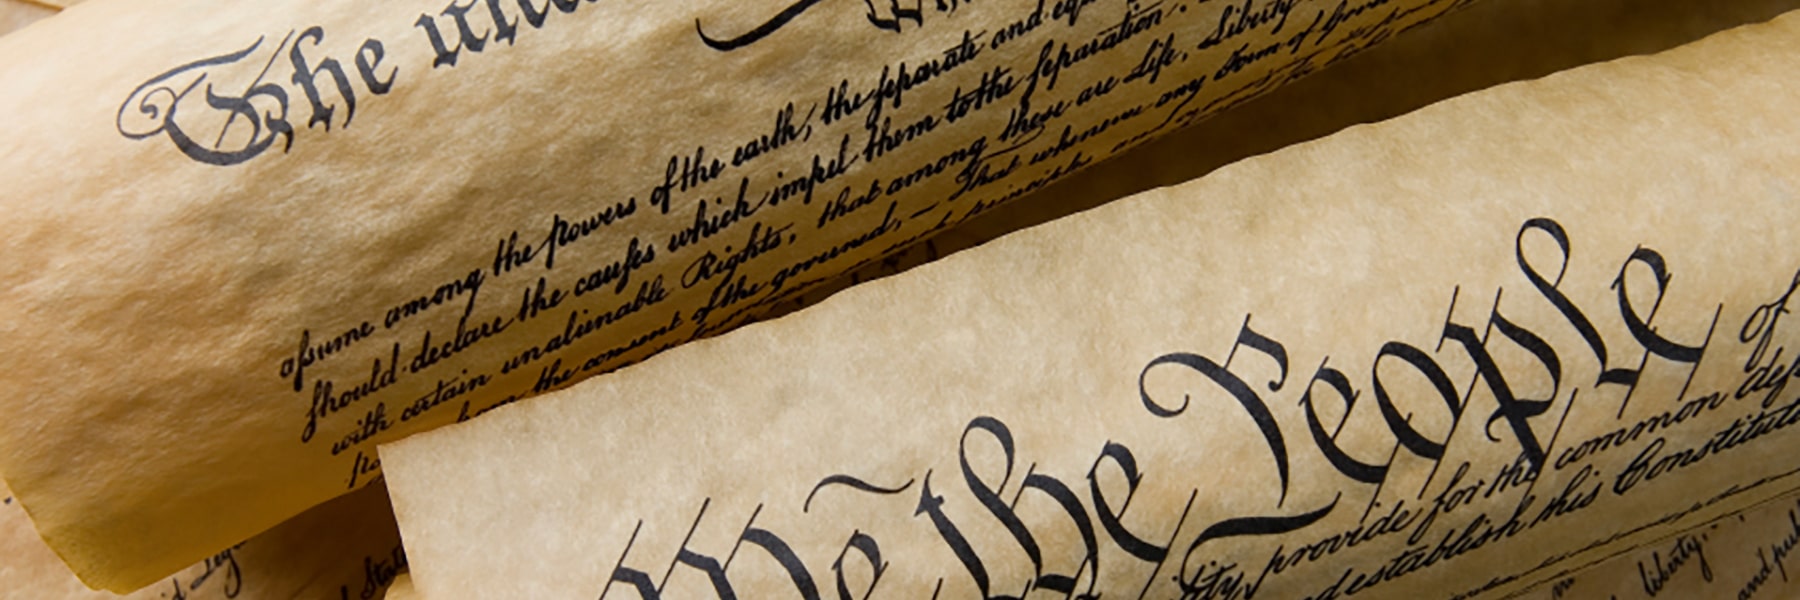 The una
assume among the powers of the earth, the separate and equ
should declare the causes which impel them to the separation.
with certain unalienable Rights, that among these are Life, Liberty
the consent of the governed, — That whenever any Form of Gover
We the People of
ity, provide for the common def
establish this Constitut
liberty,
and pub